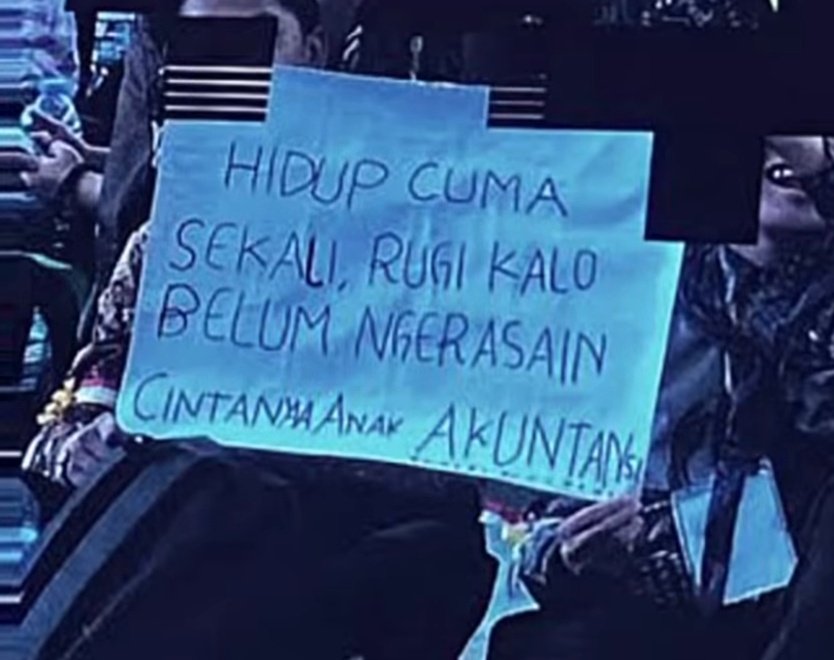 HIDUP CUMA
SEKALI, RUGI KALO
BELUM NGERASAIN
CINTANYA ANAK AKUNTANSI